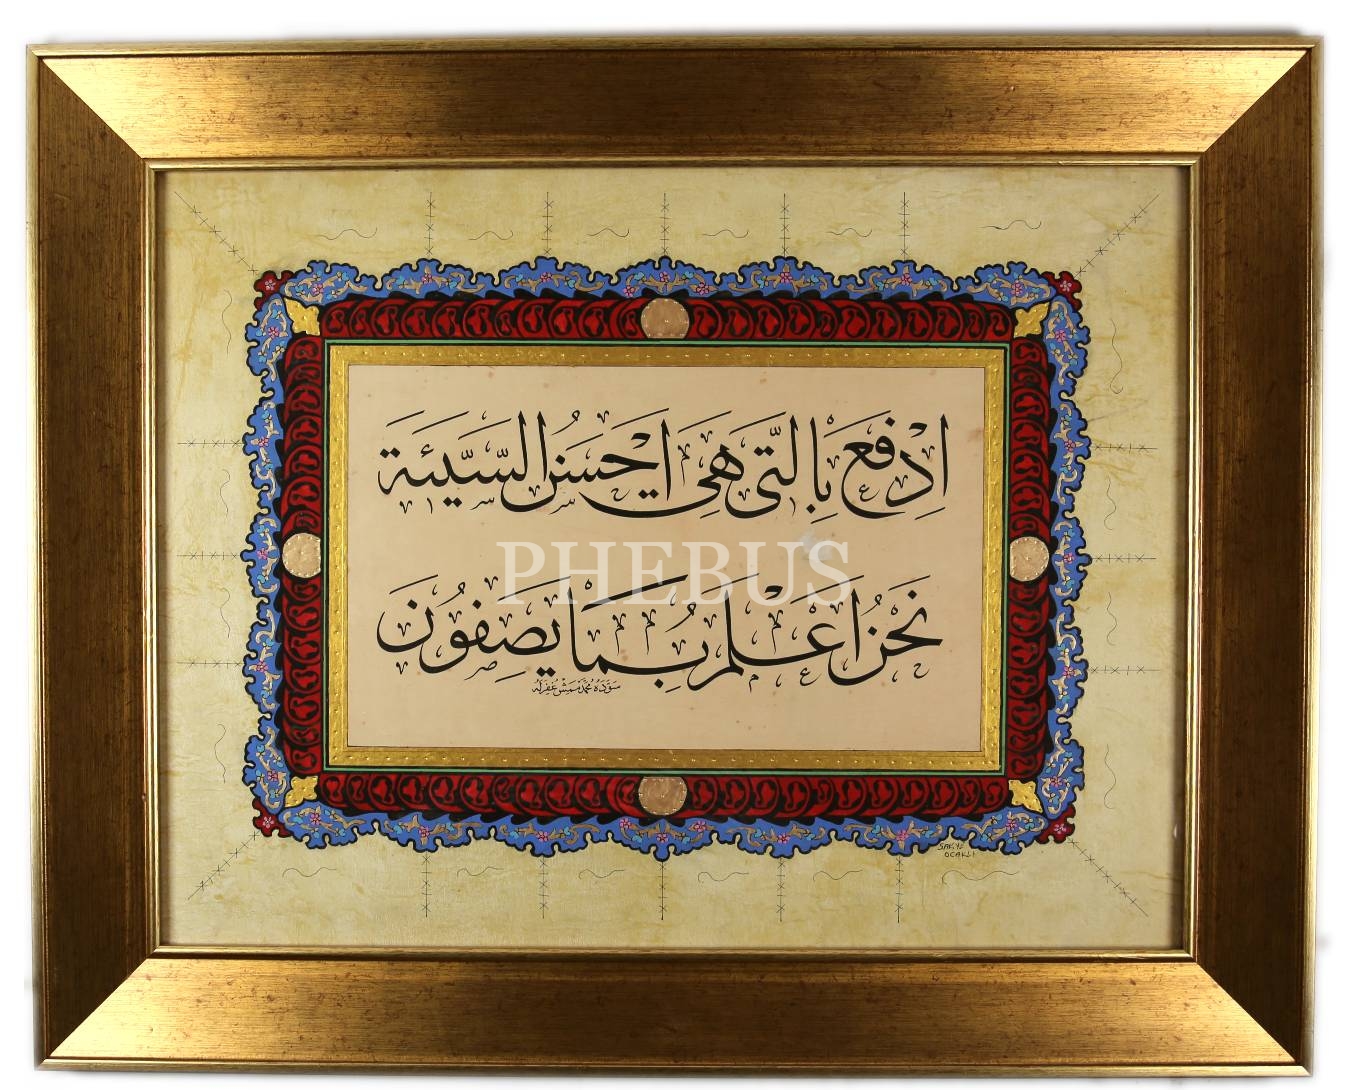 اِدْفَعْ بِالَّتى هِىَ اَحْسَنُ السَّيِّئَةَ
نَحْنُ اَعْلَمُ بِمَا يَصِفُونَ
سَوَّدَهُ مُحَمَّد ممش غُفِرَلَهُ
PHEBUS
SAFİYE
OCAKLI